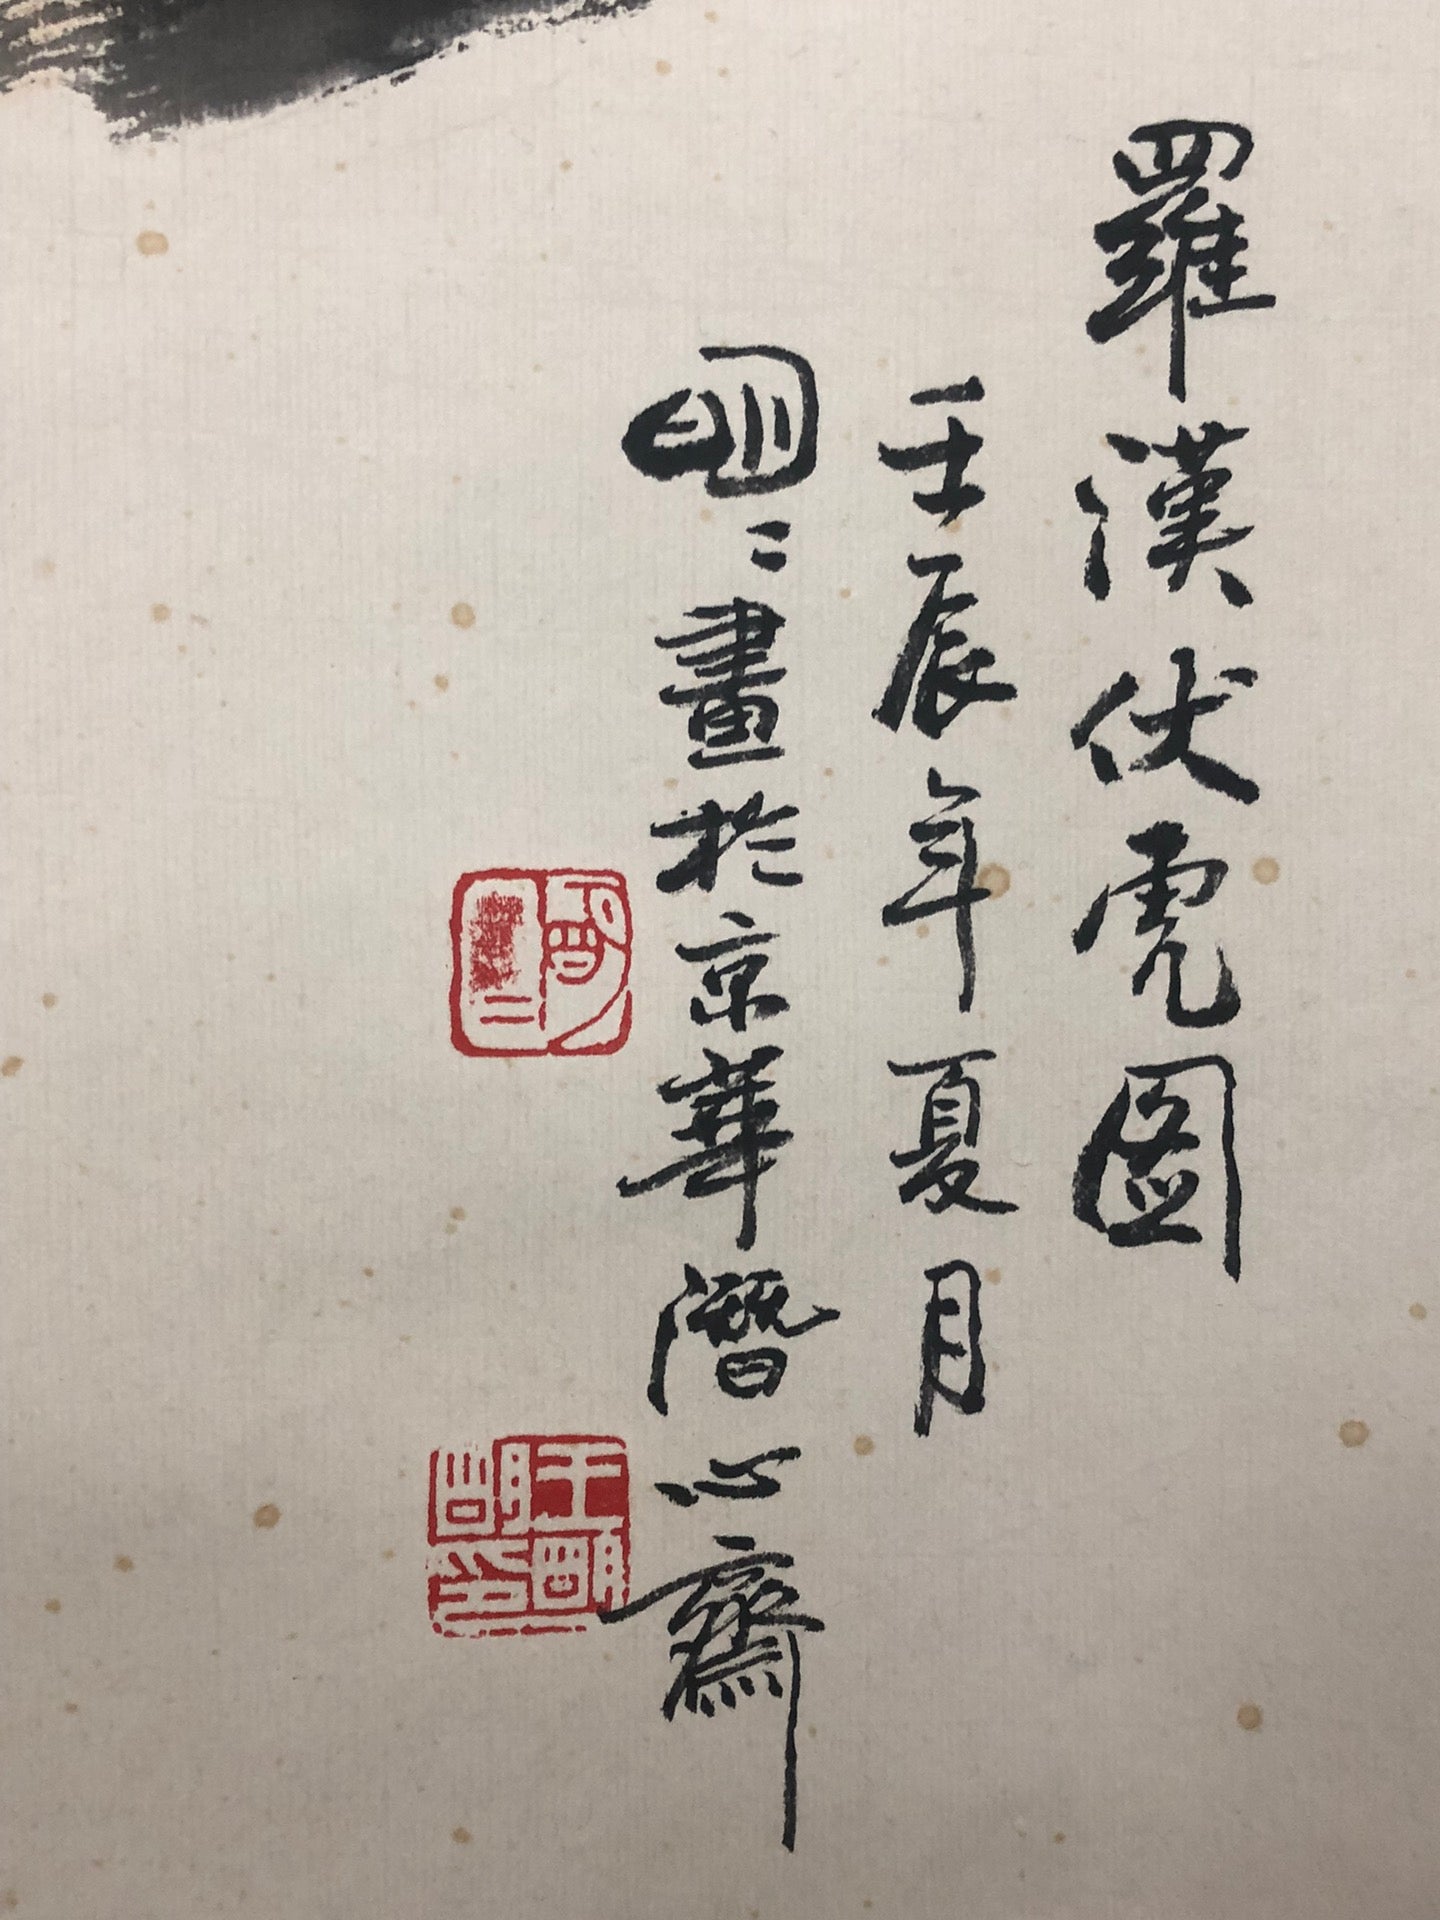 羅漢伏虎圖
壬辰年夏月
明〻畫於京華潛心齋
王明明印